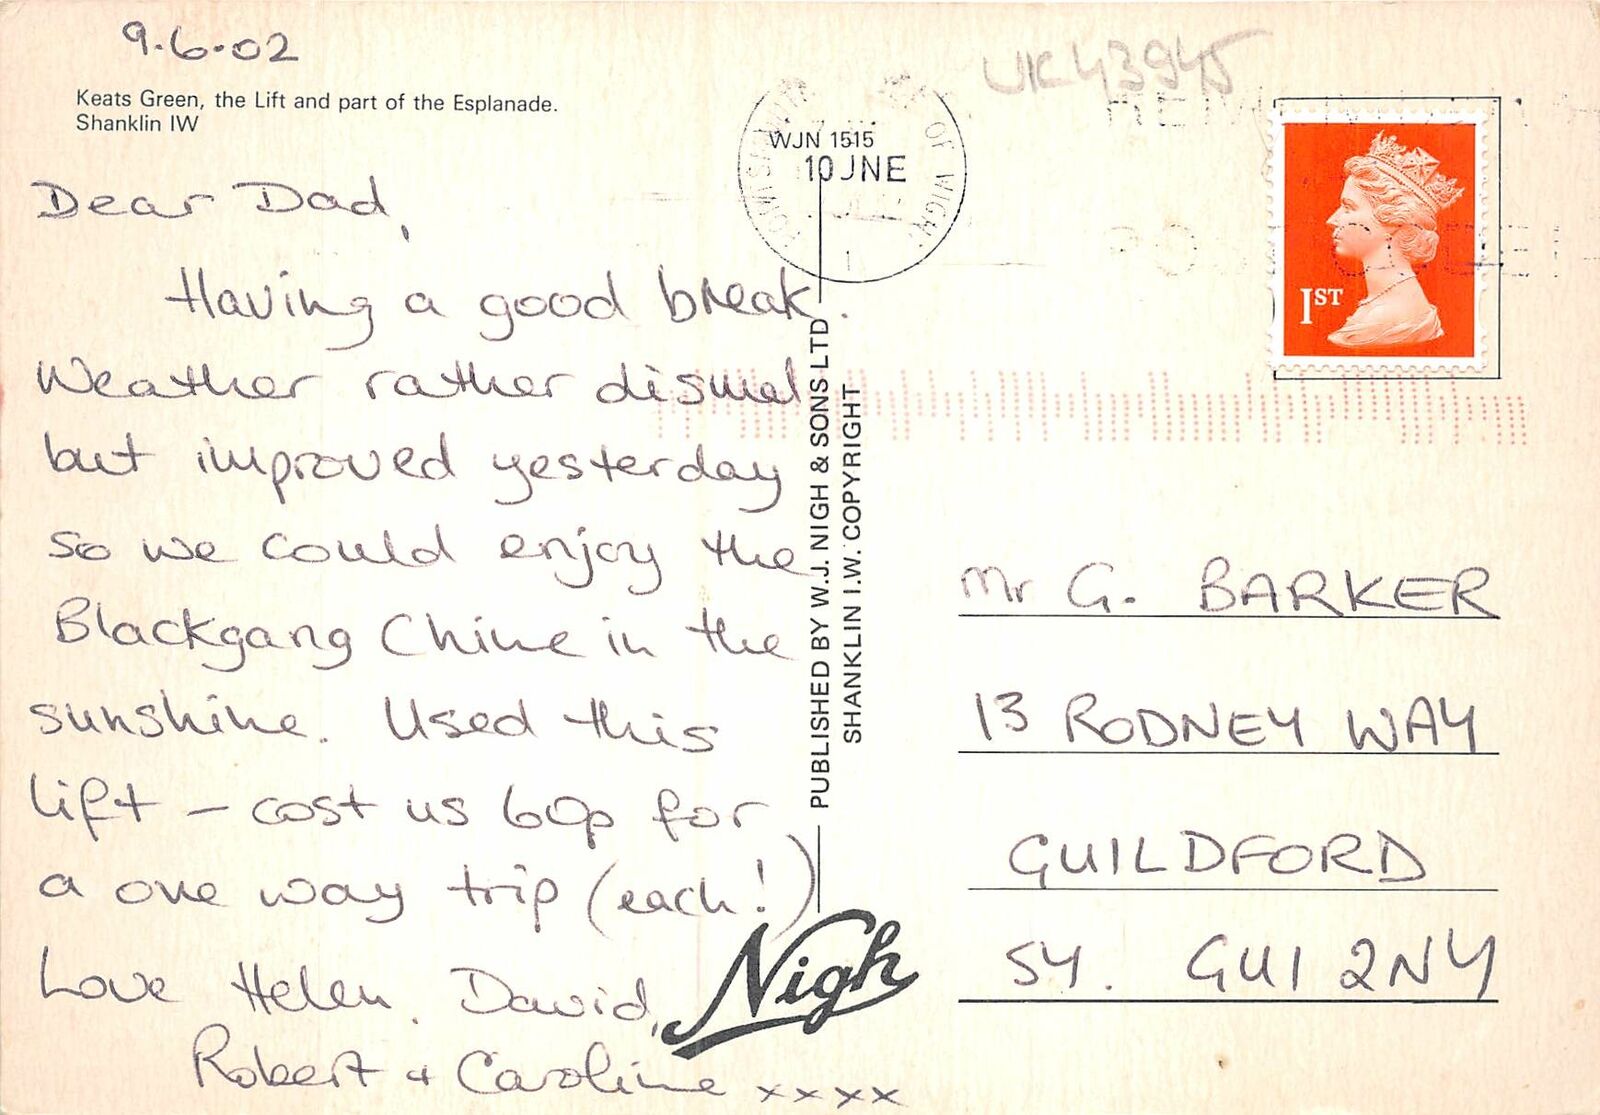 9.6.02
Keats Green, the Lift and part of the Esplanade.
Shanklin IW
Dear Dad,
Having a good break.
Weather rather dismal
but improved yesterday
so we could enjoy the
Blackgang Chine in the
sunshine. Used this
lift – cost us 60p for
a one way trip (each!)
Love Helen, David,
Robert + Caroline xxxx
WJN 1515
10 JNE
OF WIGHT
UK43945
1ST
PUBLISHED BY W.J. NIGH & SONS LTD
SHANKLIN I.W. COPYRIGHT
Nigh
Mr G. BARKER
13 RODNEY WAY
GUILDFORD
SY. GU1 2NY